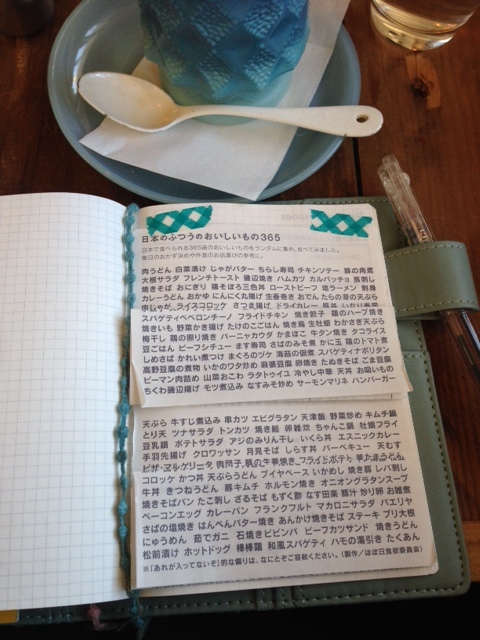 日本のふつうのおいしいもの365
日本で食べられる365品のおいしいものをランダムに集め、並べてみました。
毎日のおかず決めや外食のお店選びの参考に。
肉うどん 白菜漬け じゃがバター ちらし寿司 チキンソテー 豚の角煮
大根サラダ フレンチトースト 磯辺焼き ハムカツ カルパッチョ 馬刺し
焼きそば おにぎり 鶏そぼろ三色丼 ローストビーフ 塩ラーメン 刺身
カレーうどん おかゆ にんにく丸揚げ 生春巻き おでん たらの芽の天ぷら
ライスコロッケ さつま揚げ ドライカレー
スパゲティペペロンチーノ フライドチキン 焼き餃子 鶏のハーブ焼き
焼きいも 野菜かき揚げ たけのこごはん 焼き鳥 生牡蠣 わかさぎ天ぷら
梅干し 鶏の照り焼き バーニャカウダ かまぼこ 牛タン焼き タコライス
豆ごはん ビーフシチュー ます寿司 さばのみそ煮 かに玉 鶏のトマト煮
しめさば かれい煮つけ まぐろのヅケ 海苔の佃煮 スパゲティナポリタン
高野豆腐の煮物 いかのワタ炒め 麻婆豆腐 卵焼き たぬきそば ごま豆腐
ピーマン肉詰め 山菜おこわ ラタトゥイユ 冷やし中華 天丼 お吸いもの
ちくわ磯辺揚げ モツ煮込み なすみそ炒め サーモンマリネ ハンバーガー
天ぷら 牛すじ煮込み 串カツ エビグラタン 天津飯 野菜炒め キムチ鍋
とり天 ツナサラダ トンカツ 焼き鮭 卵雑炊 ちゃんこ鍋 牡蠣フライ
豆乳鍋 ポテトサラダ アジのみりん干し いくら丼 エスニックカレー
手羽先揚げ クロワッサン 月見そば しらす丼 バーベキュー 天むす
ピザ・マルゲリータ 肉団子 フライドポテト
コロッケ かつ丼 天ぷらうどん ブイヤベース いかめし 焼き豚 レバ刺し
牛丼 きつねうどん 豚キムチ ホルモン焼き オニオングラタンスープ
焼きそばパン たこ刺し ざるそば もずく酢 なす田楽 豚汁 炒り卵 お雑煮
ベーコンエッグ カレーパン フランクフルト マカロニサラダ パエリヤ
さばの塩焼き はんぺんバター焼き あんかけ焼きそば ステーキ ブリ大根
にゅうめん 茹でガニ 石焼きビビンバ ビーフカツサンド 焼きうどん
松前漬け ホットドッグ 棒棒鶏 和風スパゲティ ハモの湯引き たくあん
※「あれが入ってないぞ」的な偏りは、なにとぞご容赦ください。(製作/ほぼ日食欲委員会)